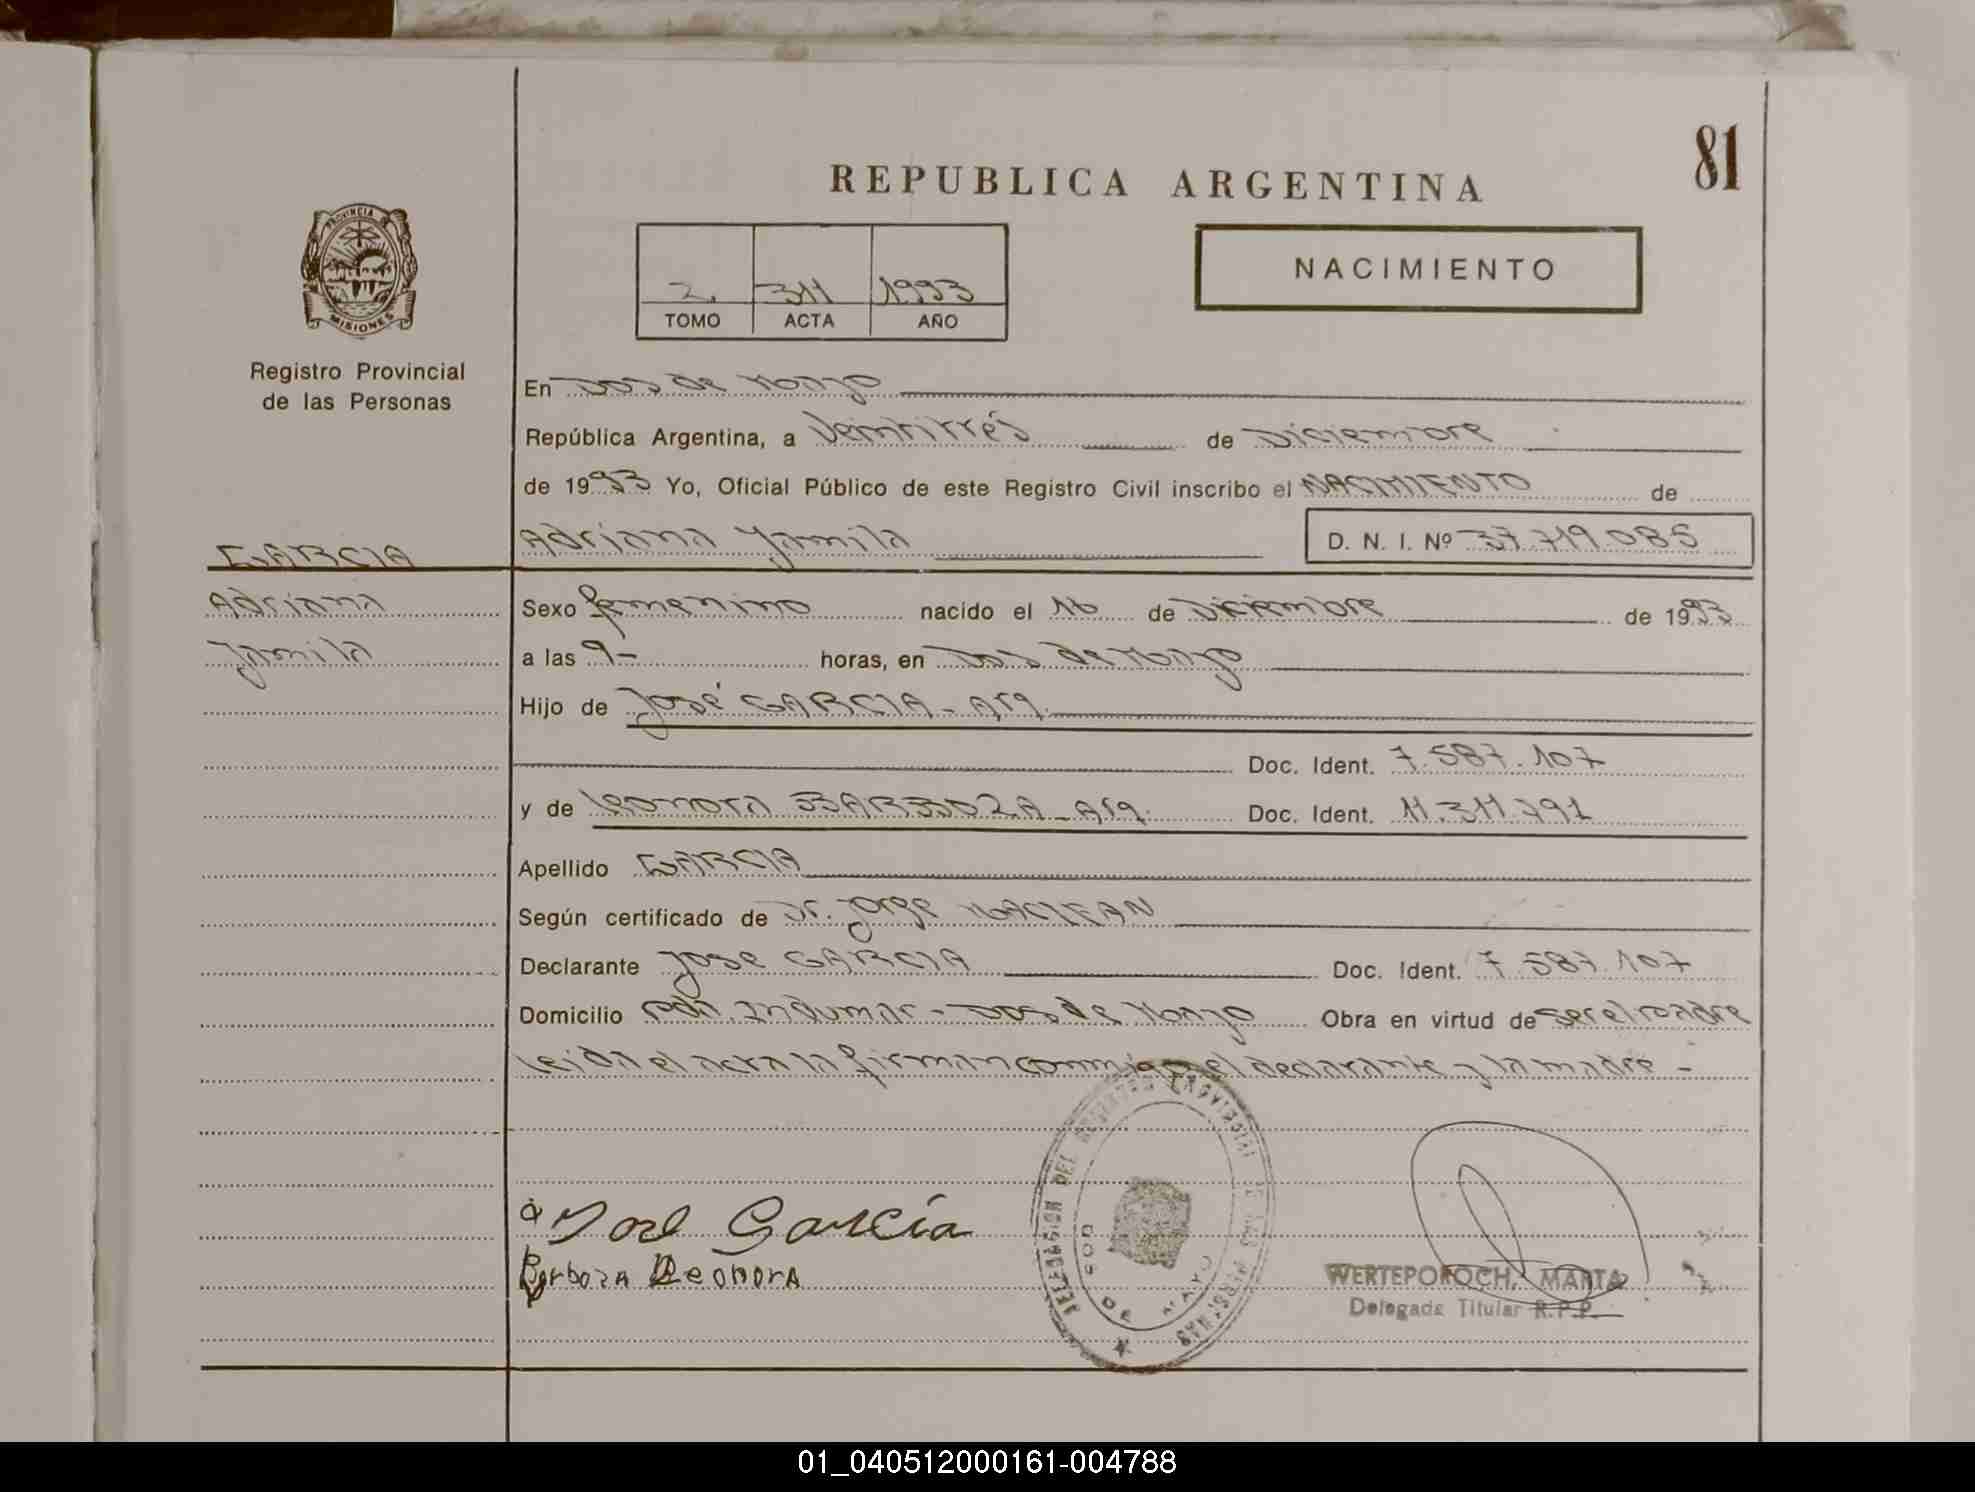 81
REPUBLICA ARGENTINA
PROVINCIA DE
MISIONES
Registro Provincial
de las Personas
2 311 1993
TOMO ACTA AÑO
NACIMIENTO
En Dos de Mayo
República Argentina, a Veintitrés de Diciembre
de 1993 Yo, Oficial Público de este Registro Civil inscribo el NACIMIENTO de
GARCIA Adriana Yamila D. N. I. Nº 37.719.085
Adriana Sexo femenino nacido el 16 de Diciembre de 1993
Yamila a las 9- horas, en Dos de Mayo
Hijo de José GARCIA - Arg.
Doc. Ident. 7.587.107
y de Leonora BARBOZA - Arg. Doc. Ident. 11.311.791
Apellido GARCIA
Según certificado de Dr. Jorge MACLEAN
Declarante José GARCIA Doc. Ident. 7.587.107
Domicilio Indumar - Dos de Mayo Obra en virtud de ser el padre
Leida el acta la firman conmigo el declarante y la madre -
DELEGACION DEL REGISTRO PROVINCIAL DE LAS PERSONAS
DOS DE MAYO
José García
Barboza Leonora
WERTEPOROCH, MARTA
Delegada Titular R.P.P.
01_040512000161-004788